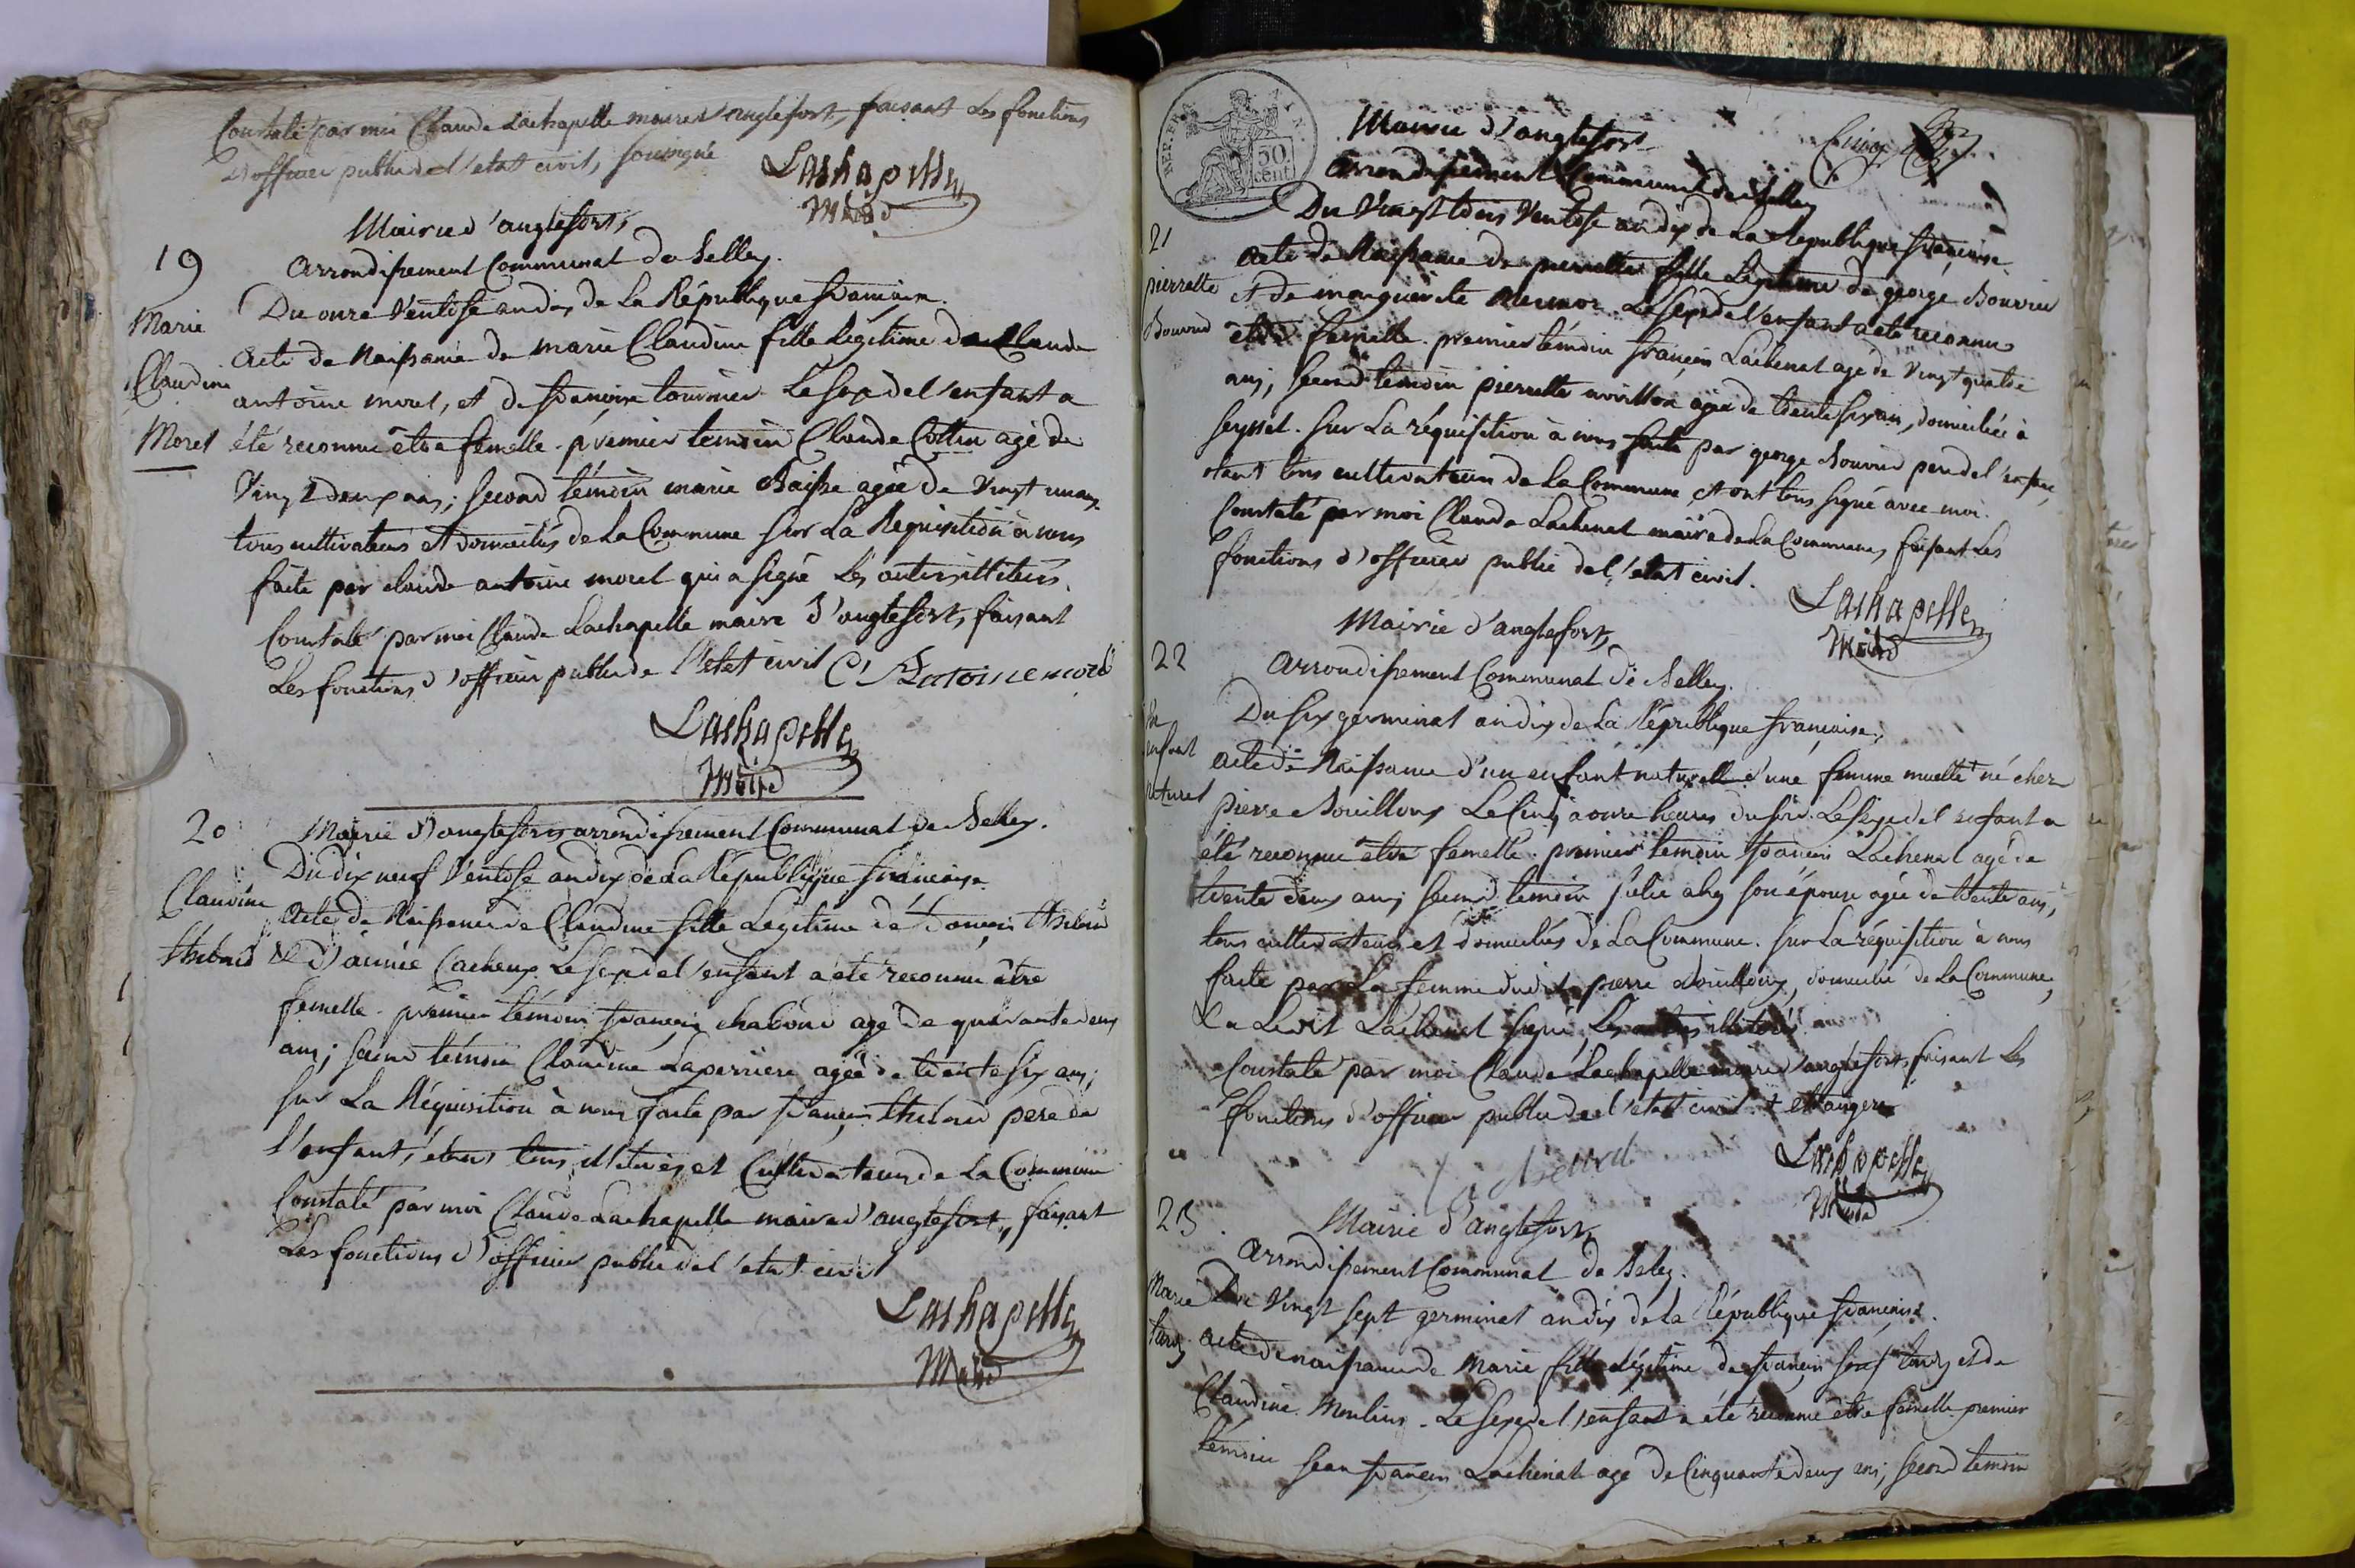 Constaté par moi Claude Lachapelle maire d'anglefort, faisant Les fonctions
D'officier public de l'etat civil, soussigné
Lachapelle
Maire
Mairie d'anglefort,
19
arrondissement Communal de Belley.
Du onze Ventose an dix de La République française.
Marie
Claudine
Morel
acte de Naissance de marie Claudine fille Légitime de Claude
antoine morel, et de françoise tournier. Le sexe de l'enfant a
été reconnu être femelle. premier temoin Claude Cottin agé de
Vingt deux ans; second témoin marie Baisse agée de Vingt un ans
tous cultivateurs et domiciliés de La Commune sur La Requisition à nous
faite par claude antoine morel qui a signé Les autres illiterés.
Constaté par moi Claude Lachapelle maire d'anglefort, faisant
Les fonctions d'officier public de l'etat civil Cl Antoine morel
Lachapelle
Maire
20
Mairie d'anglefort arrondissement Communal de Belley.
Du dix neuf Ventose an dix de La République française.
Claudine
Thibaud
acte de Naissance de Claudine fille Légitime de françois Thibaud
et d'aimée Cacheux Le sexe de l'enfant a été reconnu être
femelle. premier témoin françois chaboud agé de quarante deux
ans; second témoin Claudine Laperriere agée de trente six ans;
sur La Réquisition à nous faite par françois thibaud pere de
l'enfant, étant tous illiterés et Cultivateurs de La Commune
Constaté par moi Claude Lachapelle maire d'anglefort, faisant
Les fonctions d'officier public de l'etat civil
Lachapelle
Maire
REP. FRA.
50
cent
Mairie d'anglefort
arrondissement Communal de Belley
Du Vingt trois Ventose an dix de La République française
21
pierrette
Bouvier
acte de Naissance de pierrette fille Légitime de george Bouvier
et de marguerite mermoz. Le sexe de l'enfant a été reconnu
être femelle. premier témoin françois Lachenal agé de Vingt quatre
ans; second témoin pierrette agée de trente six ans, domiciliée à
seyssel. sur La réquisition à nous faite par george Bouvier pere de l'enfant,
étant tous cultivateurs de La Commune, et ont tous signé avec moi.
Constaté par moi Claude Lachenal maire de La Commune, faisant Les
fonctions d'officier public de l'etat civil.
Lachapelle
Maire
Mairie d'anglefort,
22
arrondissement Communal de Belley.
Du six germinal an dix de La République française,
Un
enfant
naturel
acte de Naissance d'un enfant naturelle d'une femme muette + né chez
pierre Bouilloux Le Cinq à onze heures du soir. Le sexe de l'enfant a
été reconnu être femelle. premier temoin françois Lachenal agé de
trente deux ans; second temoin julie son épouse agée de trente ans,
tous cultivateurs et domiciliés de La Commune. sur La réquisition à nous
faite par La femme dudit pierre Bouilloux, domicilié de La Commune,
Ledit Lachenal signé, Les autres illiterés
Constaté par moi Claude Lachapelle maire d'anglefort, faisant Les
fonctions d'officier public de l'etat civil. + etrangere
Lachapelle
Maire
23.
Mairie d'anglefort,
arrondissement Communal de Beley.
Marie
tardy
Du Vingt sept germinal an dix de La République française.
acte de naissance de Marie fille Légitime de françois josef tardy et de
Claudine Moulins. Le sexe de l'enfant a été reconnu être femelle. premier
témoin jean françois Lachenal agé de Cinquante deux ans; second temoin